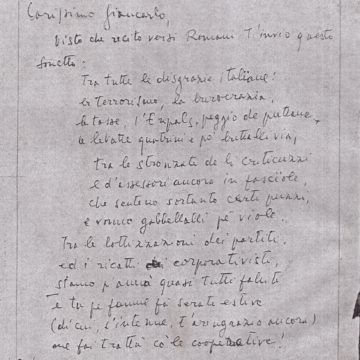 Carissimo Giancarlo,
Visto che reciti versi Romani T'invio questo
sonetto:
Tra tutte le disgrazie italiane:
er terrorismo, la burocrazia,
le tasse, l'Enpals, peggio de puttane,
e
pe' buttalli via,
tra le stronzate de li criticuzzi
e d'assessori ancora in fasciole,
che senteno sortanto certi puzzi,
e vonno gabbellalli pe' viole.
Tra le lottizzazioni dei partiti
ed i ricatti corporativisti,
stamo p'anna' quasi tutti falliti
e tu pe famme fa serate estive
(di cui, s'intenne, t'aringrazio ancora)
me fai tratta' co' le cooperative!